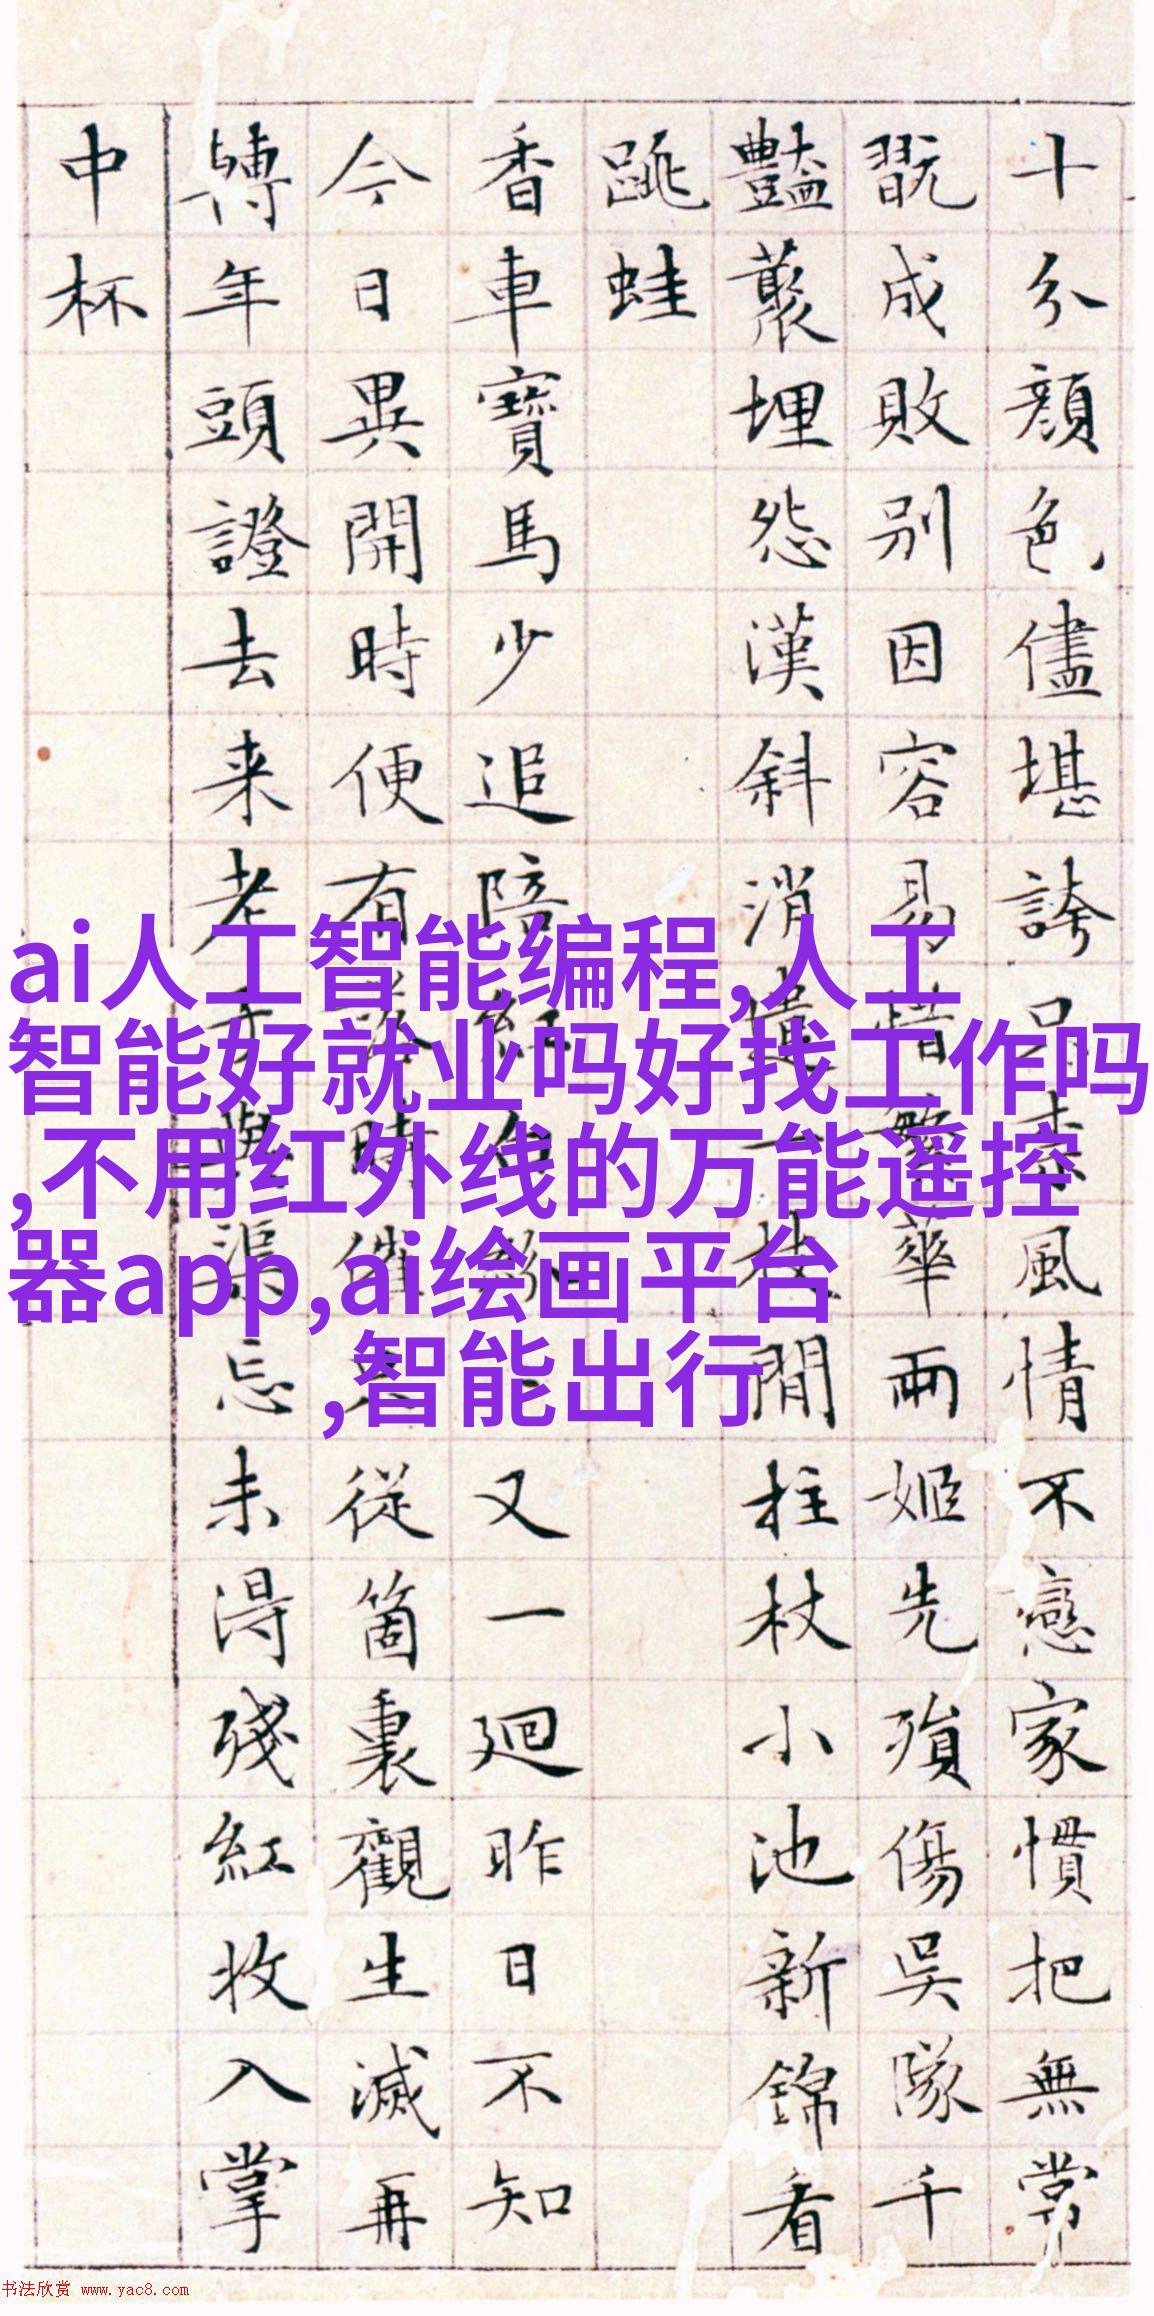 十分顏色儘堪誇風情不戀家慣把無常
翫成敗別因容易惜繁華兩姬先殞傷吳隊千
豔藂埋怨漢斜消遣一枝閒柱杖小池新錦看
跳蛙
香車寶馬少追陪紅白又一迴昨日不知
今日異開時便有時催從箇裏觀生滅再
轉年頭證去来老與渠忘未得殘紅收入掌
中杯
ai人工智能编程,人工
智能好就业吗好找工作吗
,不用红外线的万能遥控
器app,ai绘画平台
,智能出行
书法欣赏 www.yac8.com